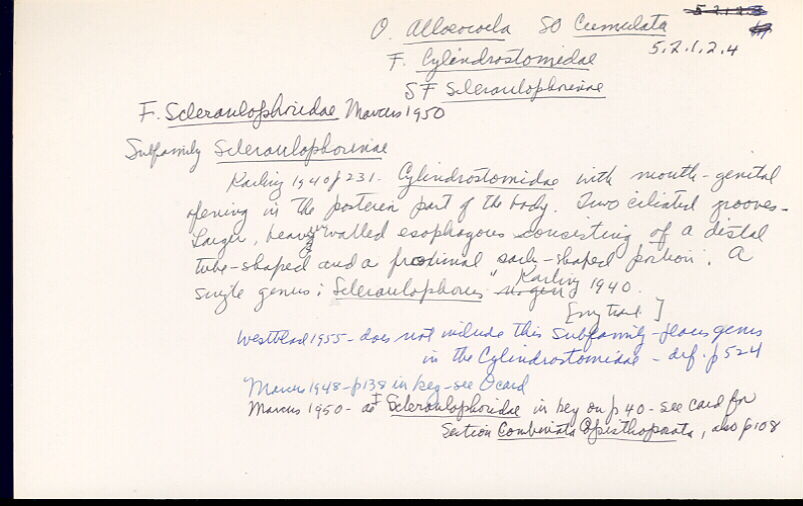 O. Alloeocoela SO Cumulata
5.2.1.2.4
F. Cylindrostomidae
SF Scleraulophorinae
F. Scleraulophoridae Marcus 1950
Subfamily Scleraulophorinae
Karling 1940 p 231. Cylindrostomidae with mouth-genital
opening in the posterior part of the body. Two ciliated grooves.
Larger, heavy walled esophagous consisting of a distal
tube-shaped and a proximal sack-shaped portion". A
single genus: Scleraulophorus Karling 1940.
[my trans.]
Westblad 1955 - does not include this Subfamily - genus
in the Cylindrostomidae - def. p 524
Marcus 1948 - p 138 in key - see O card
Marcus 1950 - as F Scleraulophoridae in key on p 40 - see card for
Section Combinata Opisthoporata, also p 108